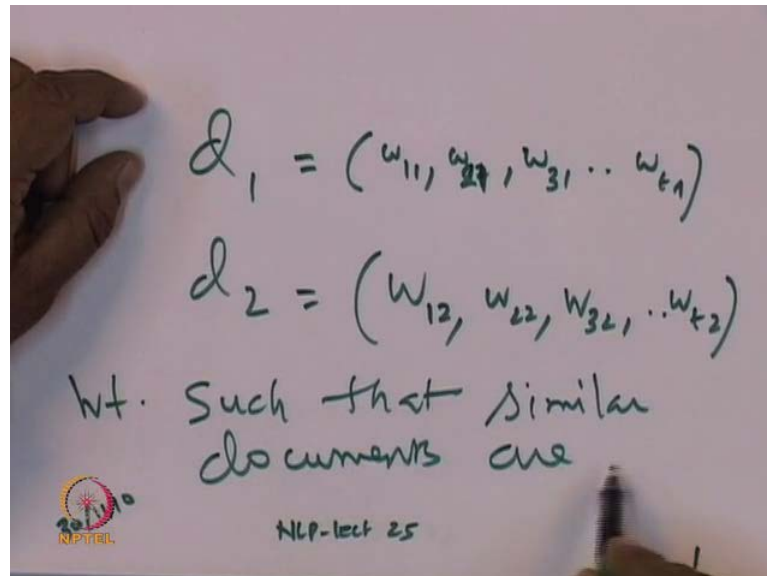 d₁ = (w₁₁, w₂₁, w₃₁ .. w_t1)
d₂ = (w₁₂, w₂₂, w₃₂, .. w_t2)
Wt. Such that similar
documents are
NPTEL
NLP-lect 25